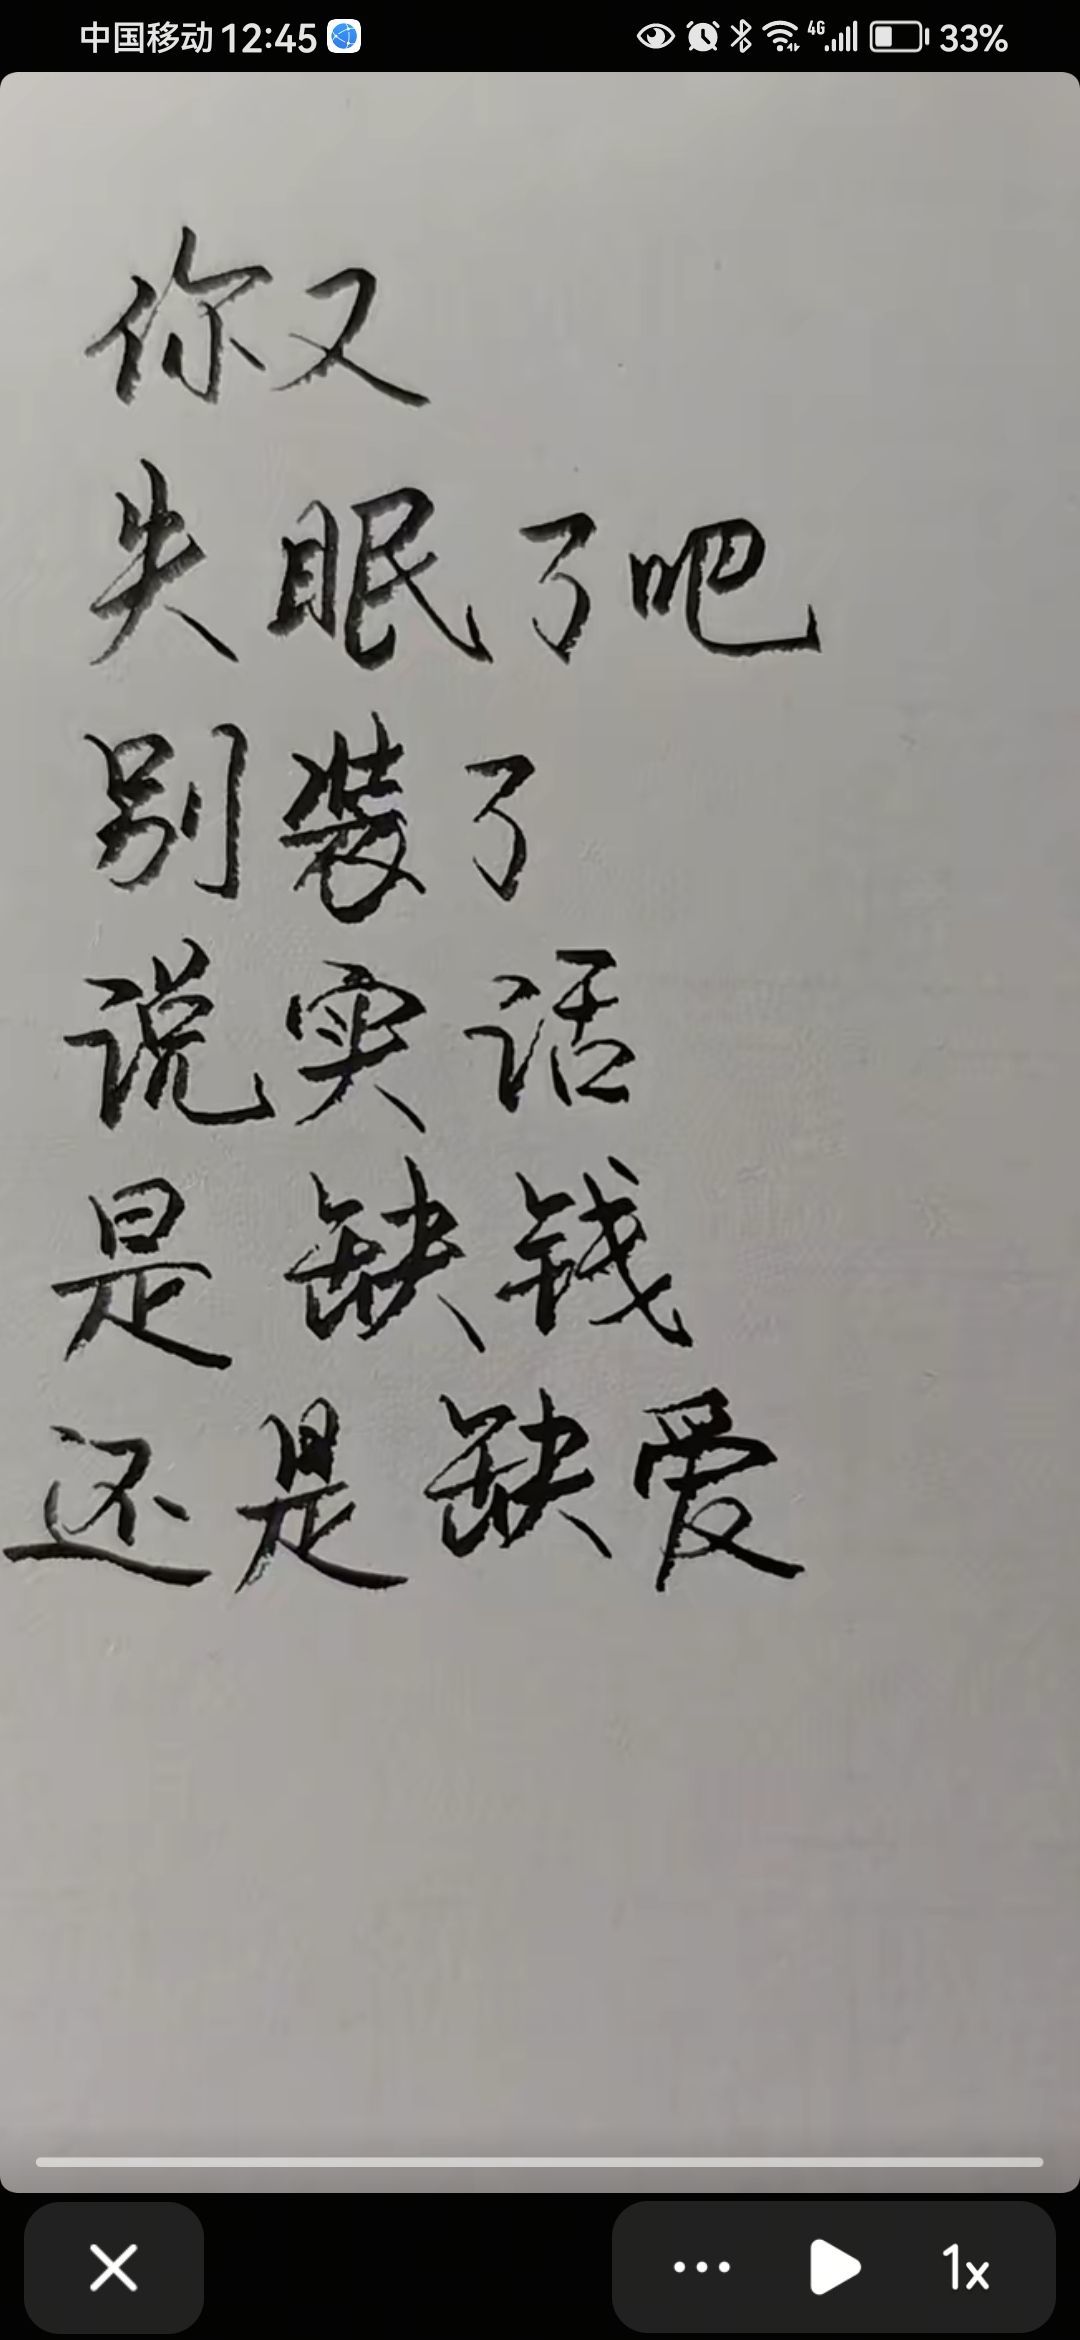 中国移动 12:45 4G 33%
你又
失眠了吧
别装了
说实话
是缺钱
还是缺爱
1x